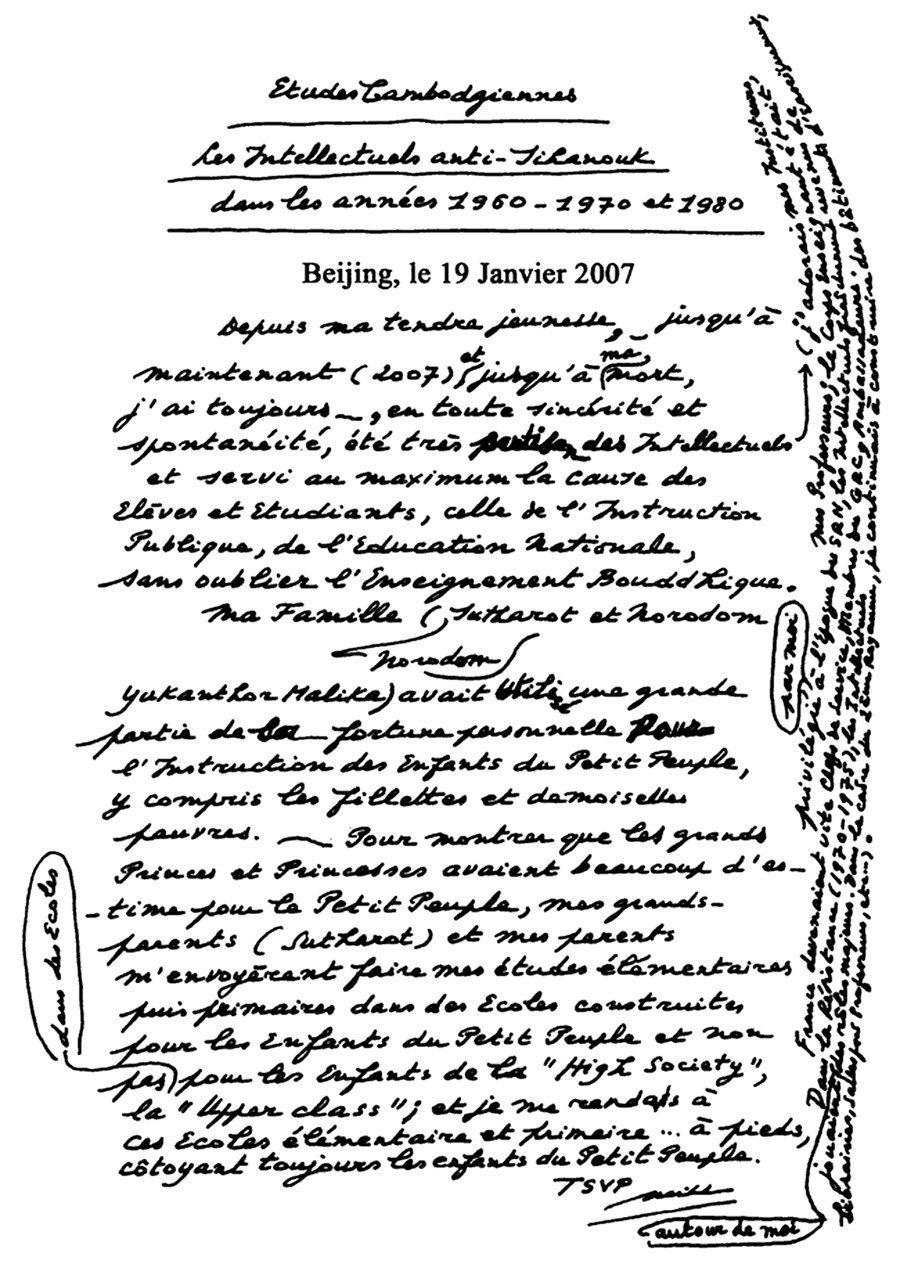 Etudes Cambodgiennes
Les Intellectuels anti-Sihanouk
dans les années 1960 - 1970 et 1980
Beijing, le 19 Janvier 2007
Depuis ma tendre jeunesse, jusqu'à
maintenant (2007) et jusqu'à ma mort,
j'ai toujours, en toute sincérité et
spontanéité, été très partisan des Intellectuels
et servi au maximum la cause des
Elèves et Etudiants, celle de l'Instruction
Publique, de l'Education Nationale,
sans oublier l'Enseignement Bouddhique.
Ma Famille (Sutharot et Norodom
Norodom
Yukanthor Malika) avait utilisé une grande
partie de fortune personnelle pour
l'Instruction des Enfants du Petit Peuple,
y compris les fillettes et demoiselles
pauvres. — Pour montrer que les grands
Princes et Princesses avaient beaucoup d'es-
-time pour le Petit Peuple, mes grands-
parents (Sutharot) et mes parents
m'envoyèrent faire mes études élémentaires
puis primaires dans des Ecoles construites
pour les Enfants du Petit Peuple et non
pas) pour les Enfants de la "High Society",
dans des Ecoles
la "Upper class"; et je me rendais à
ces Ecoles élémentaire et primaire ... à pieds,
côtoyant toujours les enfants du Petit Peuple.
TSVP
autour de moi
par moi
(j'adorais mes Instituteurs,
mes Professeurs; le Corps Enseignant était
privilégié à l'époque du SRN, les Intellectuels
France devenaient vite chefs de service,
Dans la Résistance (1970-1975), les Intellectuels
Membres du GRC, Ambassadeurs
jouaient des rôles majeurs. Dans le cadre du 2ème Royaume, je continuais à construire des bâtiments